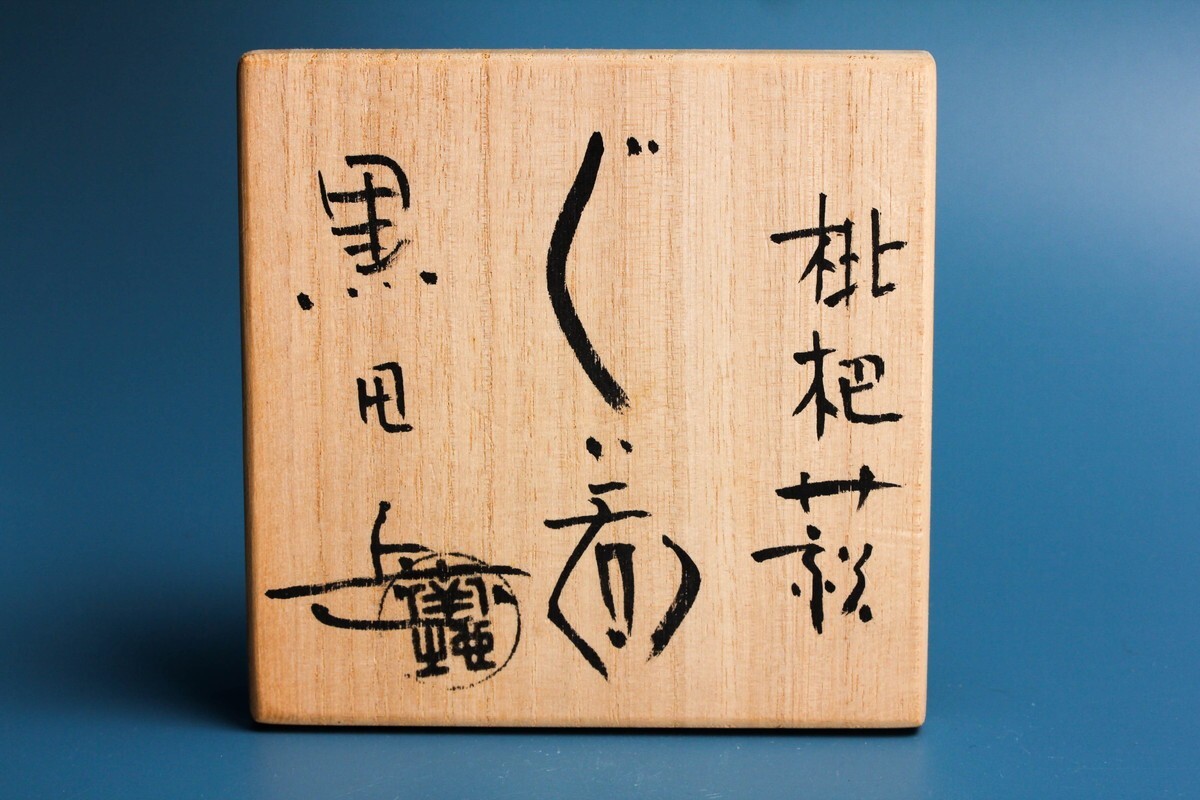 枇杷萩
ぐい呑
黒田